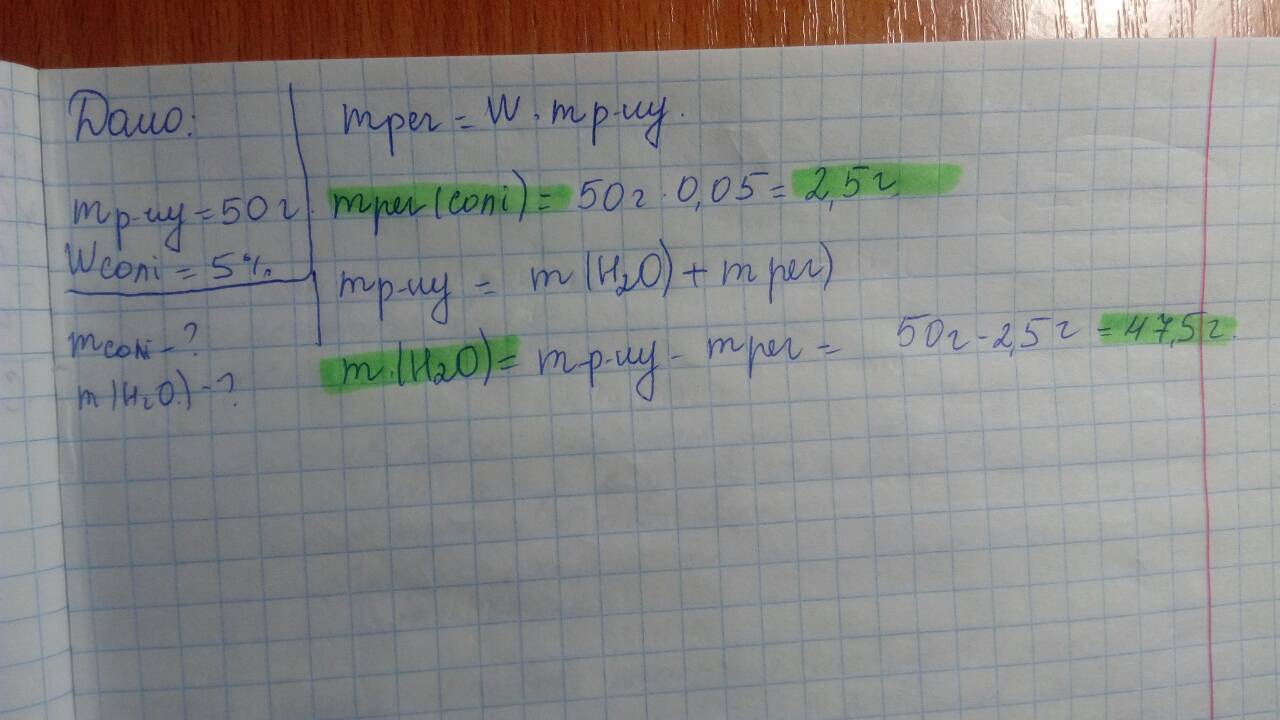 Дано:
mр-ну = 50 г.
Wсолі = 5%.
mсолі - ?
m(H₂O.) - ?
mреч = W · mр-ну.
mреч(солі) = 50г · 0,05 = 2,5г
mр-ну = m(H₂O) + mреч)
m.(H₂O) = mр-ну - mреч = 50г - 2,5г = 47,5г.